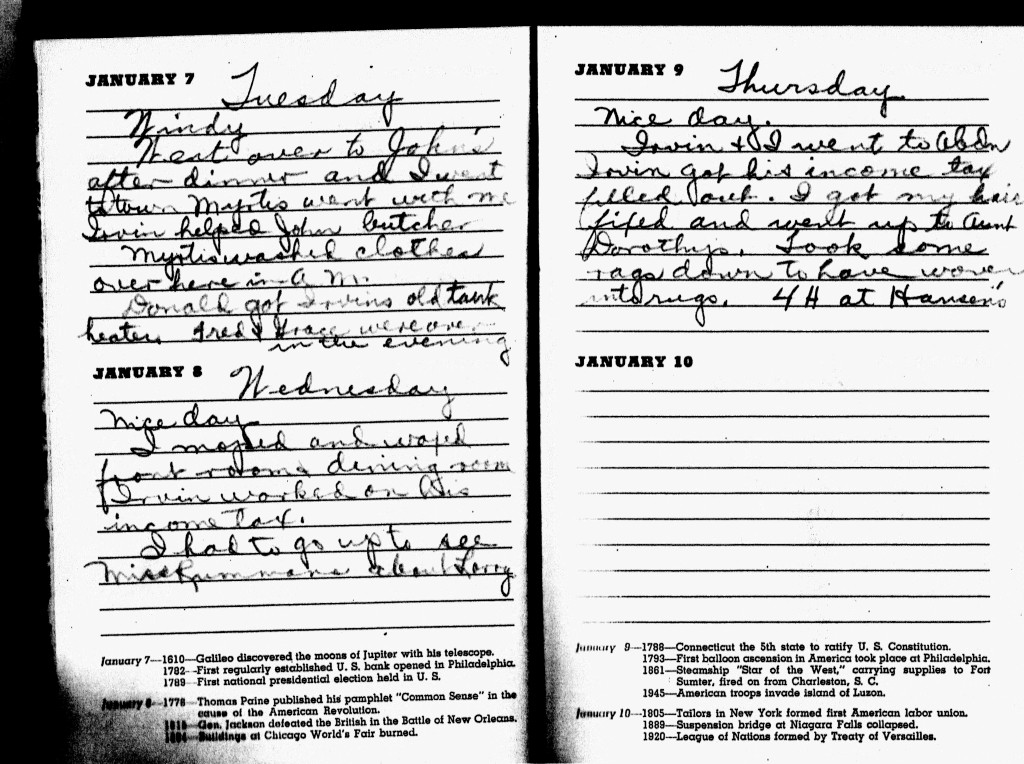 JANUARY 7 Tuesday
Windy
Went over to John's
after dinner and I went
to town Myrtis went with me
Irvin helped John butcher
Myrtis washed clothes
over here in A M.
Donald got Irvins old tank
heater. Fred & Grace were over
in the evening
JANUARY 8 Wednesday
Nice day
I moped and waxed
front rooms dining room
Irvin worked on his
income tax.
I had to go up to see
Miss about Larry
January 7—1610—Galileo discovered the moons of Jupiter with his telescope.
1782—First regularly established U. S. bank opened in Philadelphia.
1789—First national presidential election held in U. S.
January 8—1776—Thomas Paine published his pamphlet "Common Sense" in the
cause of the American Revolution.
Gen. Jackson defeated the British in the Battle of New Orleans.
Buildings at Chicago World's Fair burned.
JANUARY 9 Thursday
Nice day.
Irvin & I went to Abdn
Irvin got his income tax
filled out. I got my hair
fixed and went up to Aunt
Dorothys. Took some
rags down to have woven
into rugs. 4 H at Hansen's
JANUARY 10
January 9—1788—Connecticut the 5th state to ratify U. S. Constitution.
1793—First balloon ascension in America took place at Philadelphia.
1861—Steamship "Star of the West," carrying supplies to Fort
Sumter, fired on from Charleston, S. C.
1945—American troops invade island of Luzon.
January 10—1805—Tailors in New York formed first American labor union.
1889—Suspension bridge at Niagara Falls collapsed.
1920—League of Nations formed by Treaty of Versailles.